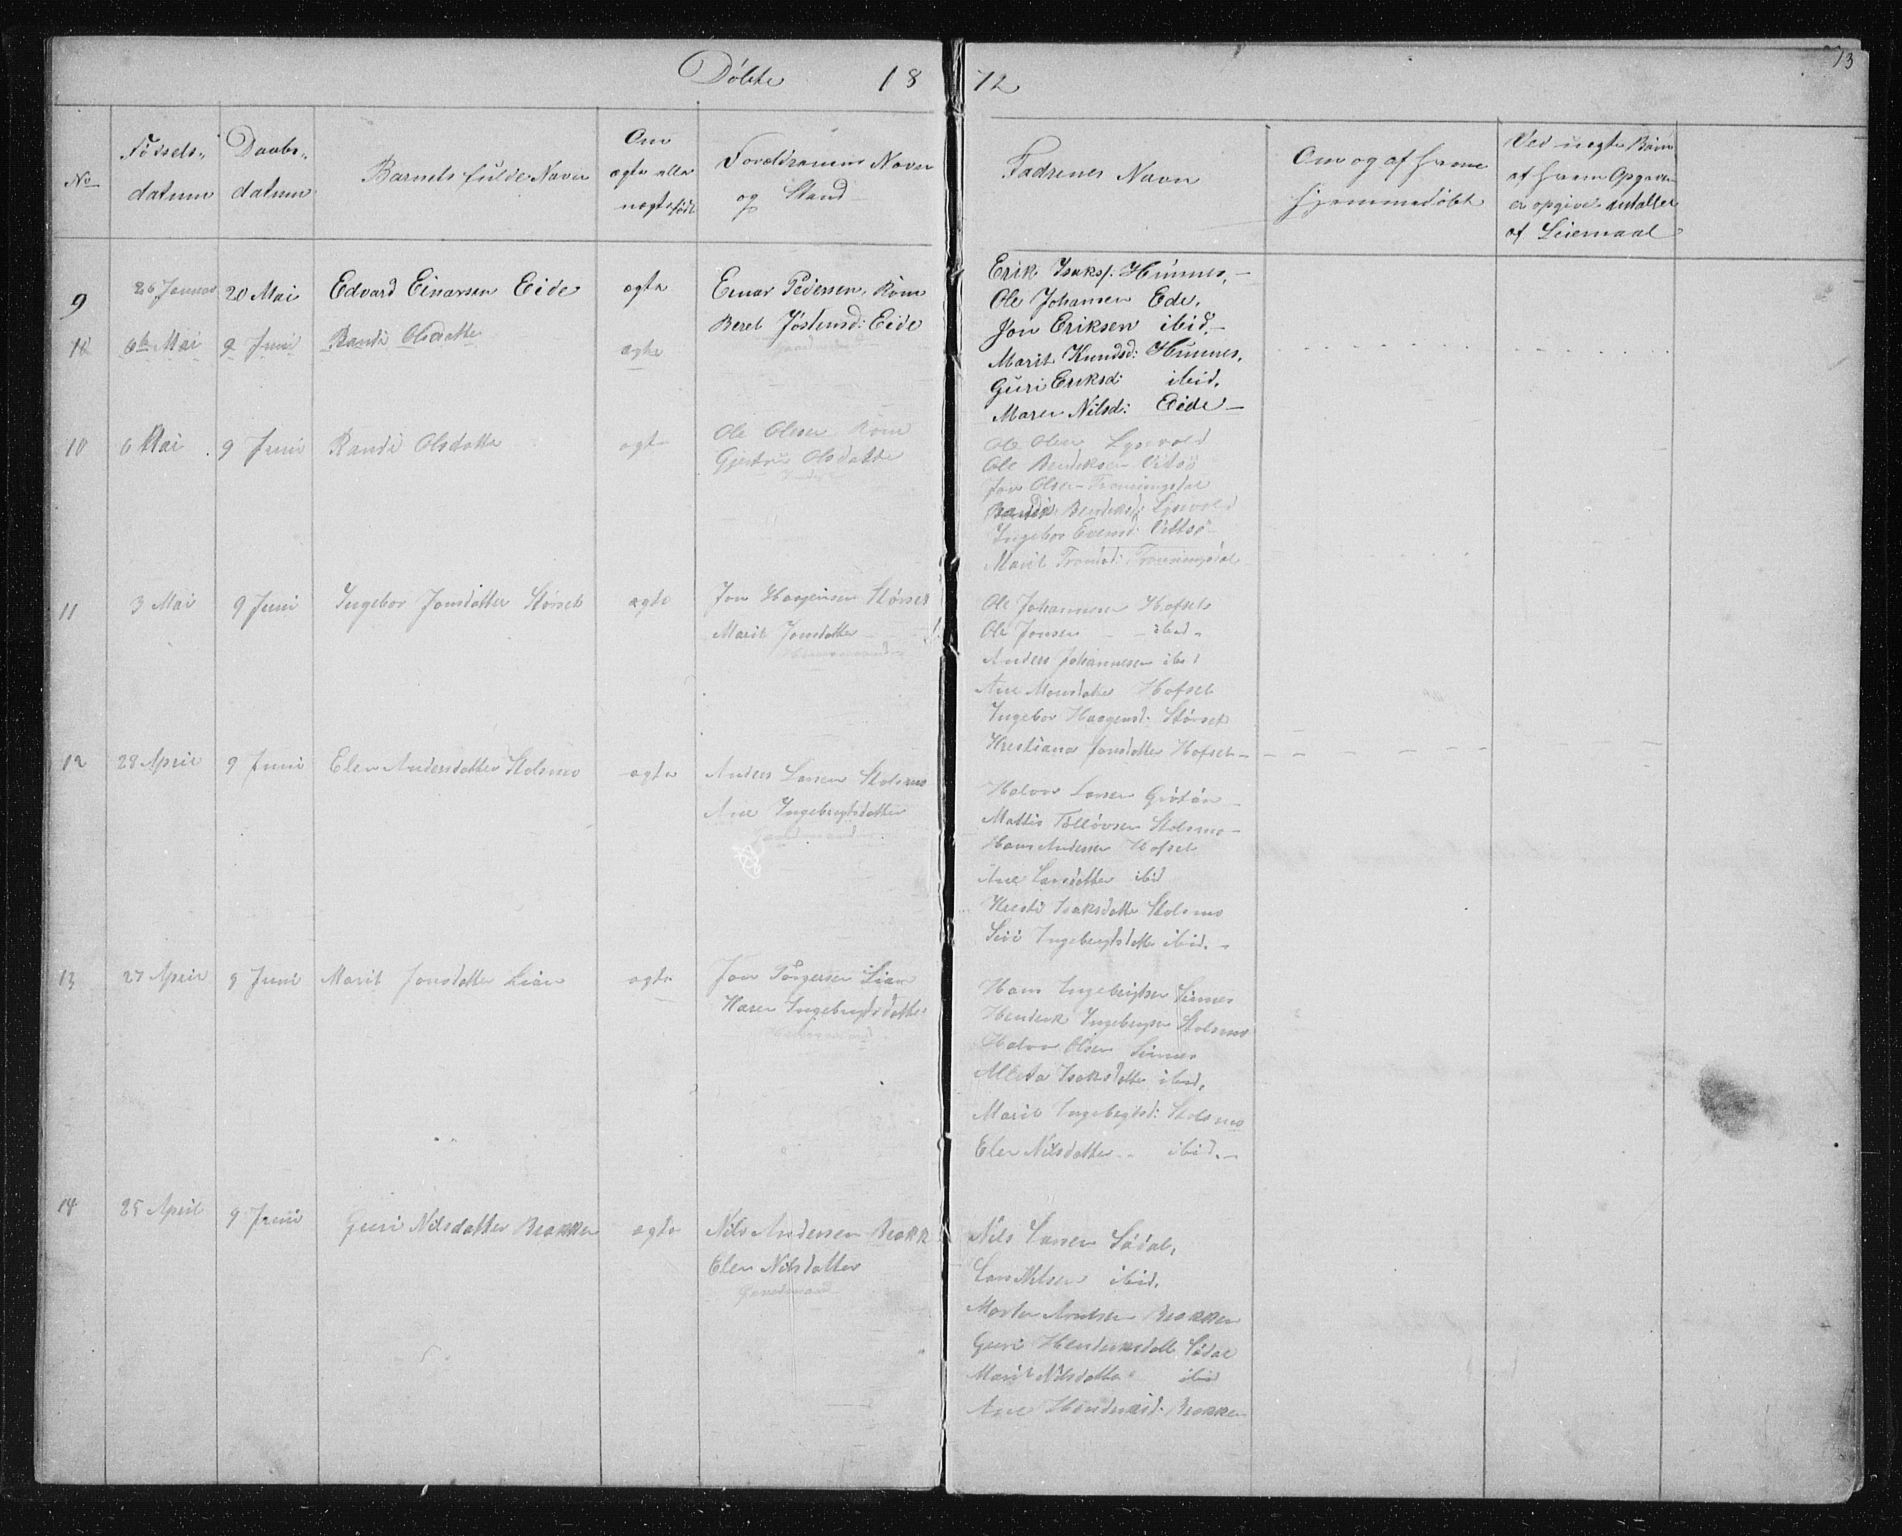 Döbte 18 72
73
No
Födsels-
datum
Daabs-
datum
Barnets fulde Navn
Om
ægte eller
uægte født
Forældrenes Navn
og Stand
Fadrenes Navn
Om og af hvem
hjemmedöbt
Ved uægte Børn
af hvem Opgaven
er opgivet antallet
af Leiermaal
9 26 Januar 20 Mai Edvard Einarsen Eide ægte
Einar Pedersen, Kone
Beret Jöstensd: Eide
Erik Isaks: Hünnes,
Ole Johansen Eide,
Jon Eriksen ibid,
Marit Knudsd: Hünnes,
Guri Eriksd: ibid,
Maren Nilsd: Eide
11 6te Mai 9 Juni Randi Olsdatte ægte
10 6 Mai 9 Juni Randi Olsdatte ægte
Ole Olsen Kone
Gjertru Olsdatte
Ole Olsen Lysvold
Ole Bendeksen Vitsö
Jon Olsen Tronningsdal
Bendeksd: Lysvold
Ingebor Evensd: Vitsö
Marit Tronsd: Tronningsdal
11 3 Mai 9 Juni Ingebor Jonsdatter Störset ægte
Jon Haagensen Störset
Marit Jonsdatter
Husmand
Ole Johannesen Hofset
Ole Jonsen ibid
Anders Johannesen ibid
Ane Monsdatter Hofset
Ingebor Haagensd: Störset
Krestiana Jonsdatter Hofset
12 28 April 9 Juni Elen Andersdatter Stolsmo ægte
Anders Larsen Stolsmo
Ane Ingebrigtsdatter
Gaardmand
Halvor Larsen Grötön
Mattis Tollövsen Stolsmo
Hans Andersen Hofset
Ane Larsdatter ibid
Kresti Isaksdatte Stolsmo
Sivi Ingebrigtsdatte ibid.
13 27 April 9 Juni Marit Jonsdatter Lian ægte
Jon Törgersen Lian
Karen Ingebrigtsdatter
Husmand
Hans Ingebrigtsen Linnes
Henderk Ingebrigtsen Stolsmo
Halvor Olsen Linnes
Isaksdatte ibid,
Marit Ingebrigtsd: Stolsmo
Elen Nilsdatter ibid.
14 25 April 9 Juni Guri Nilsdatter Brakken ægte
Nils Andersen Brakk
Elen Nilsdatter
Gaardmand
Nils Larsen Södal,
Lars Nilsen ibid.
Morten Arntsen Brakken
Guri Henderksdatt Södal
Marit Nilsdatter ibid
Ane Henderksd: Brakken